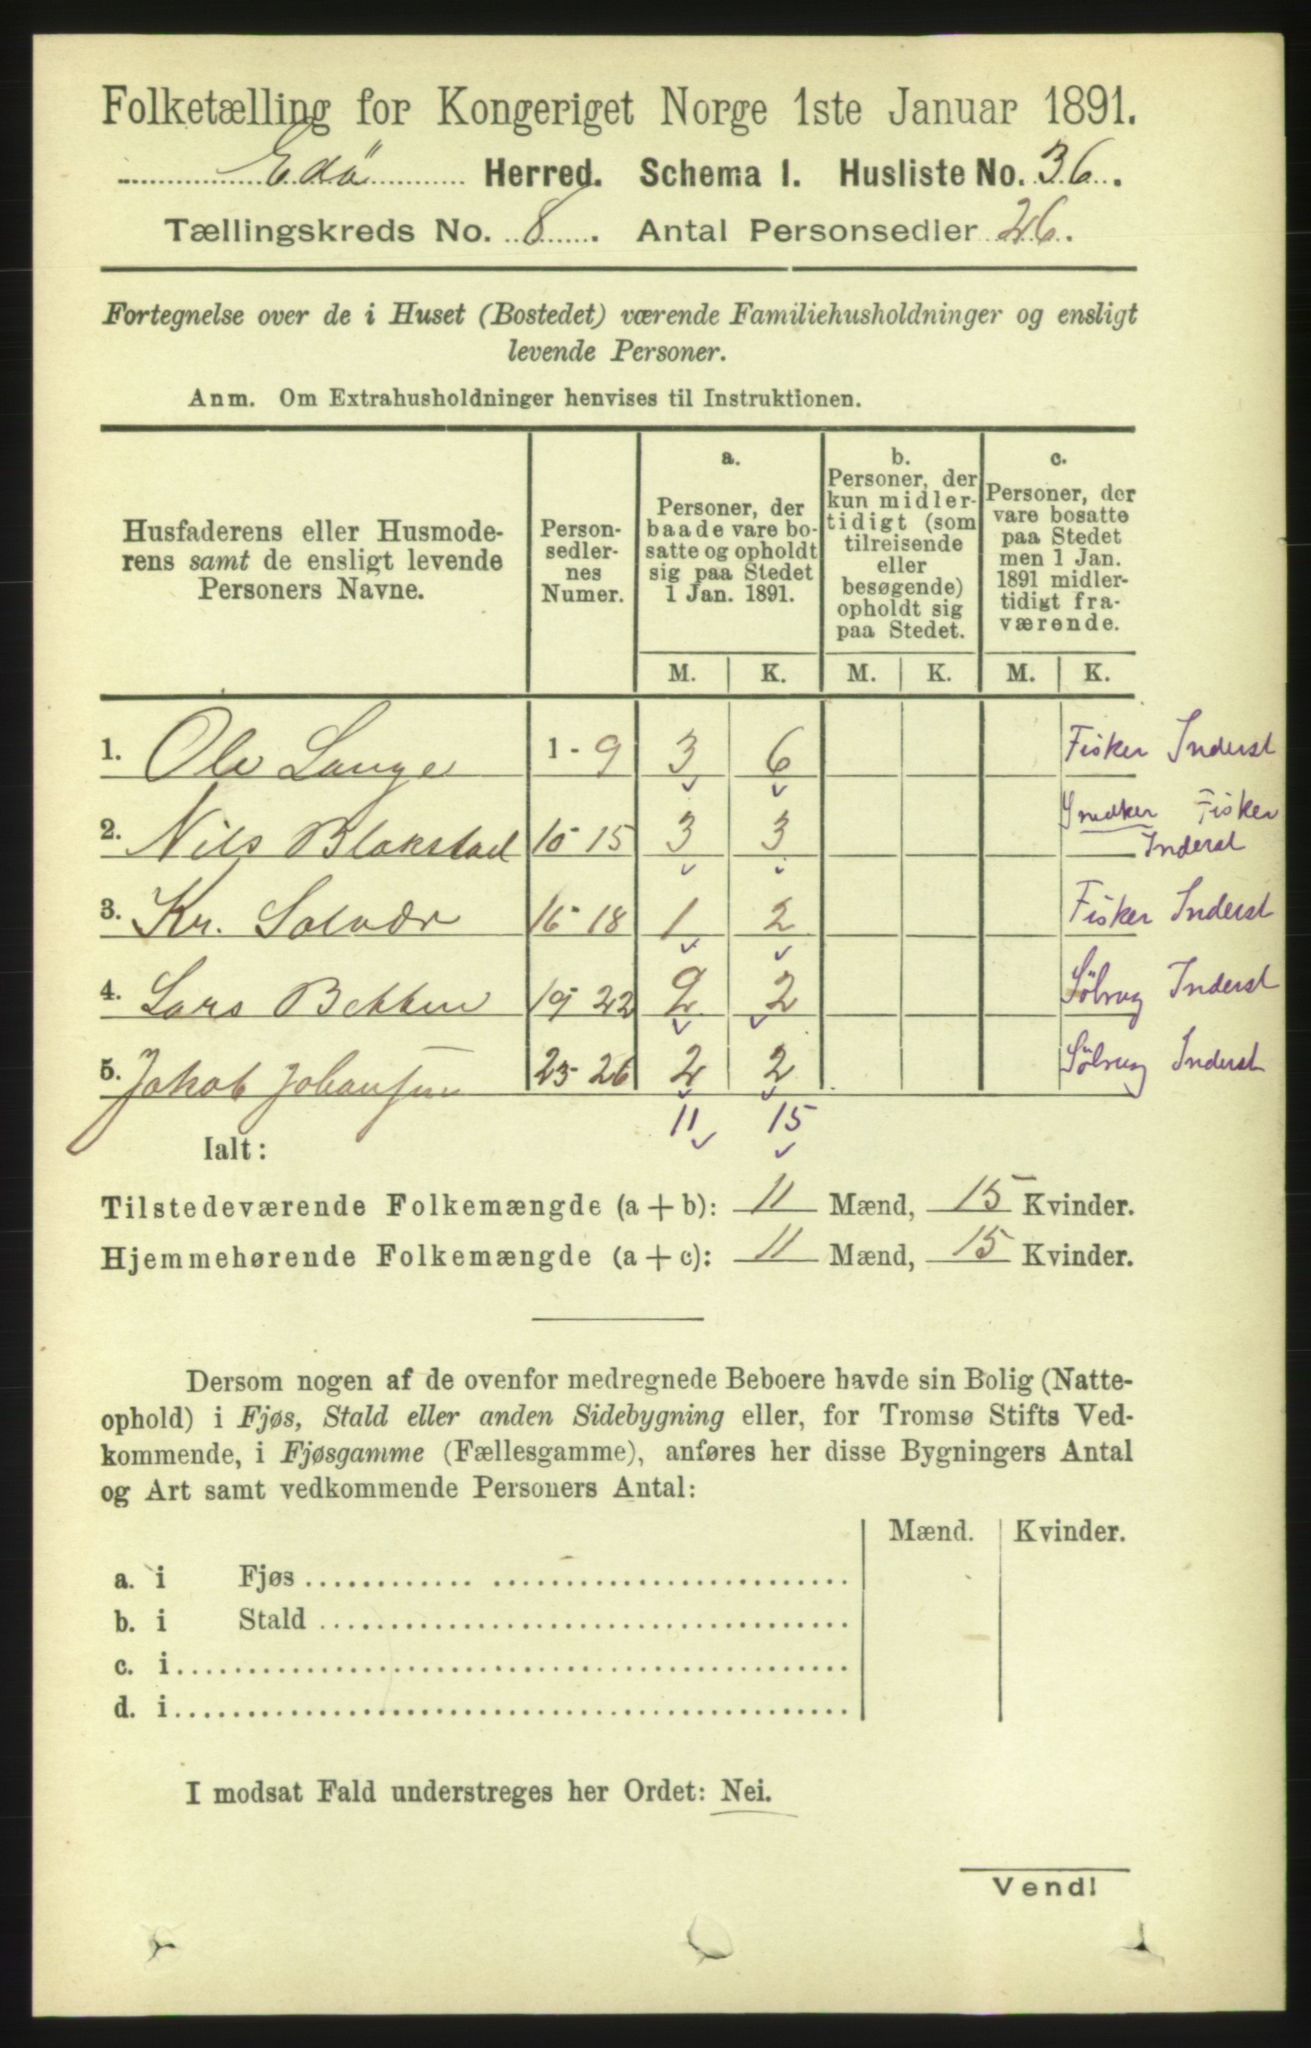 Folketælling for Kongeriget Norge 1ste Januar 1891.
Edö Herred. Schema 1. Husliste No. 36.
Tællingskreds No. 8. Antal Personsedler 26.
Fortegnelse over de i Huset (Bostedet) værende Familiehusholdninger og ensligt
levende Personer.
Anm. Om Extrahusholdninger henvises til Instruktionen.
Husfaderens eller Husmode-
rens samt de ensligt levende
Personers Navne.
Person-
sedler-
nes
Numer.
a.
Personer, der
baade vare bo-
satte og opholdt
sig paa Stedet
1 Jan. 1891.
b.
Personer, der
kun midler-
tidigt (som
tilreisende
eller
besøgende)
opholdt sig
paa Stedet.
c.
Personer, der
vare bosatte
paa Stedet
men 1 Jan.
1891 midler-
tidigt fra-
værende.
M. K. M. K. M. K.
1. Ole Lange 1 - 9 3 6 Fisker Inderst
2. Nils Blakstad 10-15 3 3 Snedker Fisker
Inderst
3. Kr. Solvær 16-18 1 2 Fisker Inderst
4. Lars Bekken 19-22 2 2 Inderst
5. Jakob Johansen 23-26 2 2 Inderst
11 15
Ialt:
Tilstedeværende Folkemængde (a + b): 11 Mænd, 15 Kvinder.
Hjemmehørende Folkemængde (a + c): 11 Mænd, 15 Kvinder.
Dersom nogen af de ovenfor medregnede Beboere havde sin Bolig (Natte-
ophold) i Fjøs, Stald eller anden Sidebygning eller, for Tromsø Stifts Ved-
kommende, i Fjøsgamme (Fællesgamme), anføres her disse Bygningers Antal
og Art samt vedkommende Personers Antal:
Mænd. Kvinder.
a. i Fjøs
b. i Stald
c. i
d. i
I modsat Fald understreges her Ordet: Nei.
Vend!